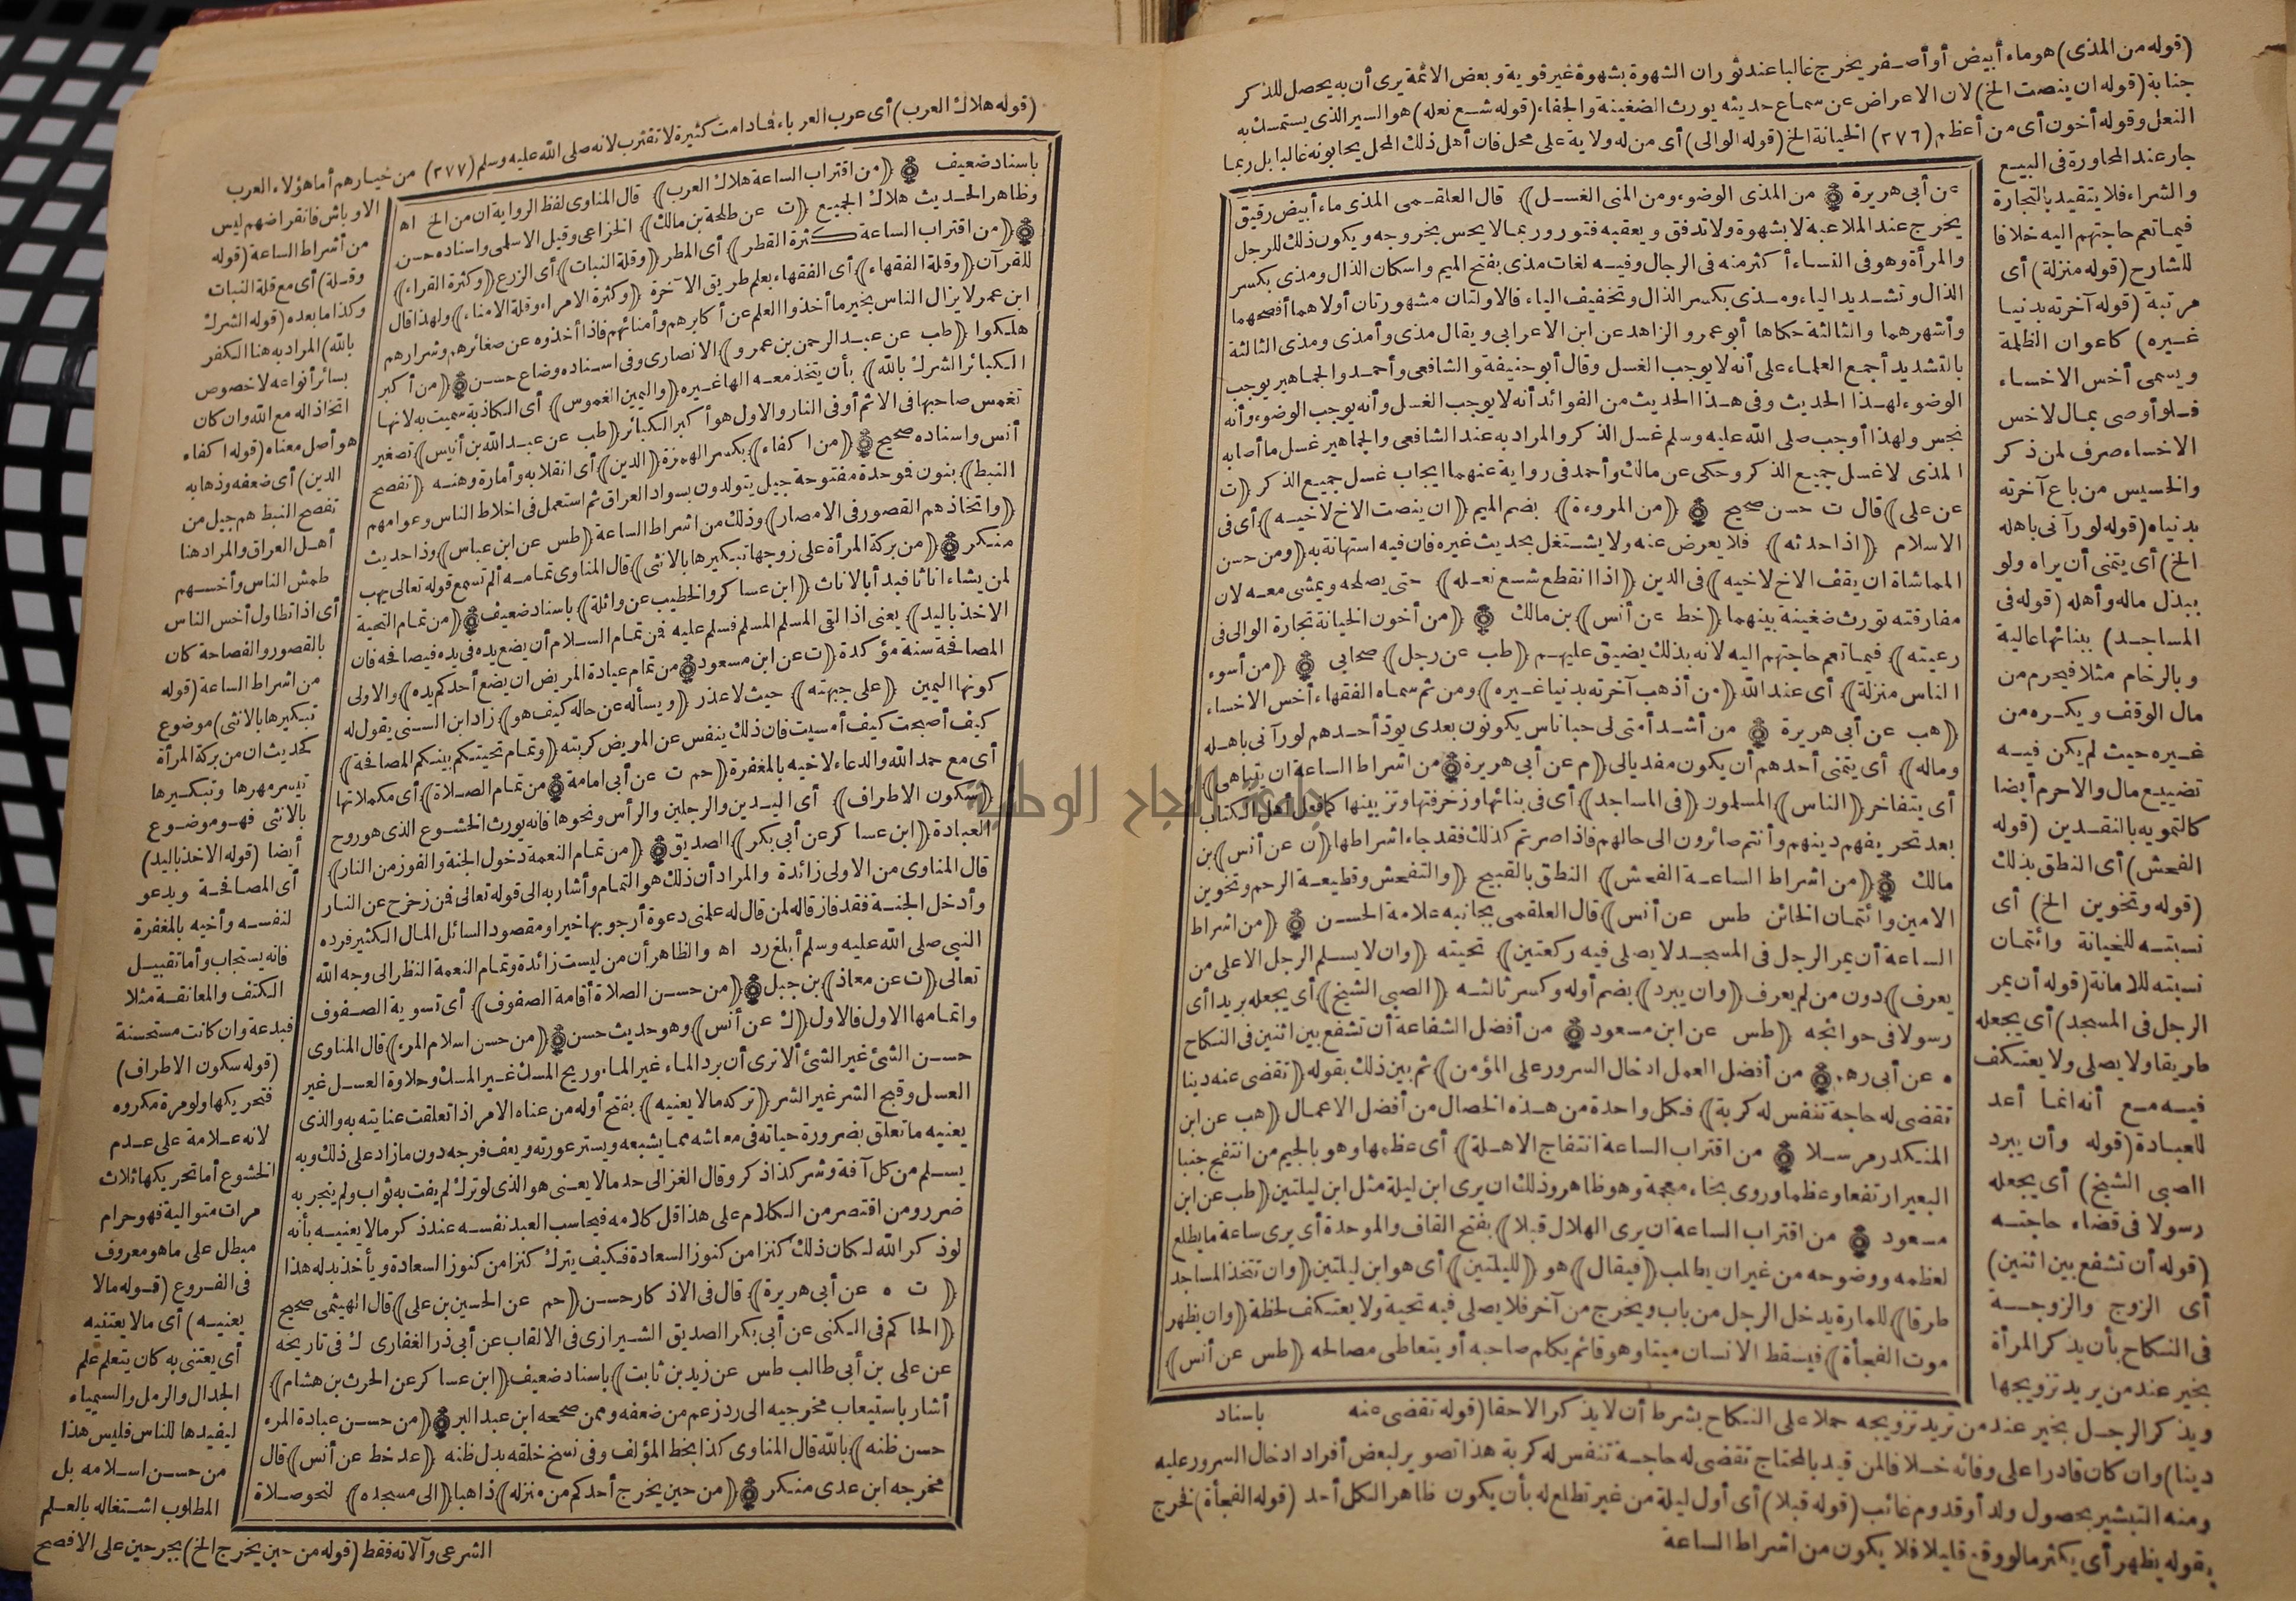 (قوله من المذى) هو ماء أبيض أو أصفر يخرج غالبا عند ثوران الشهوة بشهوة غير قوية وبعض الائمة يرى أن به يحصل للذكر
جنابة (قوله ان ينصت الخ) لان الاعراض عن سماع حديثه يورث الضغينة والجفاء (قوله شسع نعله) هو السير الذى يستمسك به
النعل وقوله أخون أى من أعظم (٣٧٦) الخيانة الخ (قوله الوالى) أى من له ولاية على محل فان أهل ذلك المحل يحابونه غالبا بل ربما
جار عند المحاورة فى البيع
والشراء فلا يتقيد بالتجارة
فيما تعم حاجتهم اليه خلافا
للشارح (قوله منزلة) أى
مرتبة (قوله آخرته بدنيا
غيره) كاعوان الظلمة
ويسمى أخس الاخساء
فلو أوصى بمال لاخس
الاخساء صرف لمن ذكر
والخسيس من باع آخرته
بدنياه (قوله لو رآنى باهله
الخ) أى يتمنى أن يراه ولو
ببذل ماله وأهله (قوله فى
المساجد) ببنائها عالية
وبالرخام مثلا فيحرم من
مال الوقف ويكره من
غيره حيث لم يكن فيه
تضييع مال والاحرم أيضا
كالتمويه بالنقدين (قوله
الفحش) أى النطق بذلك
(قوله وتخوين الخ) أى
نسبته للخيانة وائتمان
نسبته للامانة (قوله أن يمر
الرجل فى المسجد) أى يجعله
طريقا ولا يصلى ولا يعتكف
فيه مع أنه انما أعد
للعبادة (قوله وأن يبرد
الصبى الشيخ) أى يجعله
رسولا فى قضاء حاجته
(قوله أن تشفع بين اثنين)
أى الزوج والزوجة
فى النكاح بأن يذكر المرأة
بخير عند من يريد تزويجها
عن أبى هريرة ﴿من المذى الوضوء ومن المنى الغسل﴾ قال العلقمى المذى ماء أبيض رقيق
يخرج عند الملاعبة لا بشهوة ولا تدفق ويعقبه فتور وربما لا يحس بخروجه ويكون ذلك للرجل
والمرأة وهو فى النساء أكثر منه فى الرجال وفيه لغات مذى بفتح الميم واسكان الذال ومذى بكسر
الذال وتشديد الياء ومذى بكسر الذال وتخفيف الياء فالاولتان مشهورتان أولاهما أفصحهما
وأشهرهما والثالثة حكاها أبو عمرو الزاهد عن ابن الاعرابى ويقال مذى وأمذى ومذى الثالثة
بالتشديد أجمع العلماء على أنه لا يوجب الغسل وقال أبو حنيفة والشافعى وأحمد والجماهير يوجب
الوضوء لهذا الحديث وفى هذا الحديث من الفوائد أنه لا يوجب الغسل وأنه يوجب الوضوء وأنه
نجس ولهذا أوجب صلى الله عليه وسلم غسل الذكر والمراد به عند الشافعى والجماهير غسل ما أصابه
المذى لا غسل جميع الذكر وحكى عن مالك وأحمد فى رواية عنهما ايجاب غسل جميع الذكر ﴿ت
عن على﴾ قال ت حسن صحيح ﴿من المروءة﴾ بضم الميم ﴿ان ينصت الاخ لاخيه﴾ أى فى
الاسلام ﴿اذا حدثه﴾ فلا يعرض عنه ولا يشتغل بحديث غيره فان فيه استهانة به ﴿ومن حسن
المماشاة ان يقف الاخ لاخيه﴾ فى الدين ﴿اذا انقطع شسع نعله﴾ حتى يصلحه ويمشى معه لان
مفارقته تورث ضغينة بينهما ﴿خط عن أنس﴾ بن مالك ﴿من أخون الخيانة تجارة الوالى فى
رعيته﴾ فيما تعم حاجتهم اليه لانه بذلك يضيق عليهم ﴿طب عن رجل﴾ صحابى ﴿من أسوء
الناس منزلة﴾ أى عند الله ﴿من أذهب آخرته بدنيا غيره﴾ ومن ثم سماه الفقهاء أخس الاخساء
﴿هب عن أبى هريرة من أشد أمتى لى حبا ناس يكونون بعدى يود أحدهم لو رآنى باهله
وماله﴾ أى يتمنى أحدهم أن يكون مفديا لى ﴿م عن أبى هريرة من اشراط الساعة ان يتباهى﴾
أى يتفاخر ﴿الناس﴾ المسلمون ﴿فى المساجد﴾ أى فى بنائها وزخرفتها وتزيينها كما فعل أهل الكتاب
بعد تحريفهم دينهم وأنتم صائرون الى حالهم فاذا صرتم كذلك فقد جاء اشراطها ﴿ن عن أنس﴾ بن
مالك ﴿من اشراط الساعة الفحش﴾ النطق بالقبيح ﴿والتفحش وقطيعة الرحم وتخوين
الامين وائتمان الخائن طس عن أنس﴾ قال العلقمى بجانبه علامة الحسن ﴿من اشراط
الساعة أن يمر الرجل فى المسجد لا يصلى فيه ركعتين﴾ تحيته ﴿وان لا يسلم الرجل الا على من
يعرف﴾ دون من لم يعرف ﴿وان يبرد﴾ بضم أوله وكسر ثالثه ﴿الصبى الشيخ﴾ أى يجعله بريدا أى
رسولا فى حوائجه ﴿طس عن ابن مسعود من أفضل الشفاعة أن تشفع بين اثنين فى النكاح
ه عن أبى رهم من أفضل العمل ادخال السرور على المؤمن﴾ ثم بين ذلك بقوله ﴿تقضى عنه دينا
تقضى له حاجة تنفس له كربة﴾ فكل واحدة من هذه الخصال من أفضل الاعمال ﴿هب عن ابن
المنكدر مرسلا من اقتراب الساعة انتفاج الاهلة﴾ أى عظمها وهو بالجيم من انتفج جنبا
البعير ارتفعا وعظما وروى بخاء معجمة وهو ظاهر وذلك ان يرى ابن ليلة مثل ابن ليلتين ﴿طب عن ابن
مسعود من اقتراب الساعة ان يرى الهلال قبلا﴾ بفتح القاف والموحدة أى يرى ساعة ما يطلع
لعظمه ووضوحه من غير ان يطلب ﴿فيقال﴾ هو ﴿لليلتين﴾ أى هو ابن ليلتين ﴿وان تتخذ المساجد
طرقا﴾ للمارة يدخل الرجل من باب ويخرج من آخر فلا يصلى فيه تحية ولا يعتكف لحظة ﴿وان يظهر
موت الفجأة﴾ فيسقط الانسان ميتا وهو قائم يكلم صاحبه أو يتعاطى مصالحه ﴿طس عن أنس﴾
باسناد
ويذكر الرجل بخير عند من تريد تزويجه حملا على النكاح بشرط أن لا يذكر الاحقا (قوله تقضى عنه
دينا) وان كان قادرا على وفائه خلافا لمن قيد بالمحتاج تقضى له حاجة تنفس له كربة هذا تصوير لبعض أفراد ادخال السرور عليه
ومنه التبشير بحصول ولد أو قدوم غائب (قوله قبلا) أى أول ليلة من غير تطلع له بأن يكون ظاهرا لكل أحد (قوله الفجأة) فخرج
بقوله يظهر أى يكثر ما لو وقع قليلا فلا يكون من اشراط الساعة
(قوله هلاك العرب) أى عرب العرباء فمادامت كثيرة لا تقترب لانه صلى الله عليه وسلم (٣٧٧) من خيارهم أما هؤلاء العرب
الاوباش فانقراضهم ليس
من أشراط الساعة (قوله
وقلة) أى مع قلة النبات
وكذا ما بعده (قوله الشرك
بالله) المراد به هنا الكفر
بسائر أنواعه لا خصوص
اتخاذ اله مع الله وان كان
هو أصل معناه (قوله اكفاء
الدين) أى ضعفه وذهابه
تفصح النبط هم جيل من
أهل العراق والمراد هنا
طمش الناس وأخسهم
أى اذا تطاول أخس الناس
بالقصور والفصاحة كان
من اشراط الساعة (قوله
تبكيرها بالانثى) موضوع
كحديث ان من بركة المرأة
تيسر مهرها وتبكيرها
بالانثى فهو موضوع
أيضا (قوله الاخذ باليد)
أى المصافحة ويدعو
لنفسه وأخيه بالمغفرة
فانه يستجاب وأما تقبيل
الكتف والمعانقة مثلا
فبدعة وان كانت مستحسنة
(قوله سكون الاطراف)
فتحريكها ولو مرة مكروه
لانه علامة على عدم
الخشوع أما تحريكها ثلاث
مرات متوالية فهو حرام
مبطل على ما هو معروف
فى الفروع (قوله مالا
يعنيه) أى مالا يعتنيه
أى يعتنى به كان يتعلم علم
الجدال والرمل والسيمياء
ليفيدها للناس فليس هذا
من حسن اسلامه بل
المطلوب اشتغاله بالعلم
باسناد ضعيف ﴿من اقتراب الساعة هلاك العرب﴾ قال المناوى لفظ الرواية ان من الخ اه
وظاهر الحديث هلاك الجميع ﴿ت عن طلحة بن مالك﴾ الخزاعى وقيل الاسلمى واسناده حسن
﴿من اقتراب الساعة كثرة القطر﴾ أى المطر ﴿وقلة النبات﴾ أى الزرع ﴿وكثرة القراء﴾
للقرآن ﴿وقلة الفقهاء﴾ أى الفقهاء بعلم طريق الآخرة ﴿وكثرة الامراء وقلة الامناء﴾ ولهذا قال
ابن عمر لا يزال الناس بخير ما أخذوا العلم عن أكابرهم وأمنائهم فاذا أخذوه عن صغائرهم وشرارهم
هلكوا ﴿طب عن عبد الرحمن بن عمرو﴾ الانصارى وفى اسناده وضاع حسن ﴿من أكبر
الكبائر الشرك بالله﴾ بأن يتخذ معه الها غيره ﴿واليمين الغموس﴾ أى الكاذبة سميت به لانها
تغمس صاحبها فى الاثم أو فى النار والاول هو أكبر الكبائر ﴿طب عن عبد الله بن أنيس﴾ تصغير
أنس واسناده صحيح ﴿من اكفاء﴾ بكسر الهمزة ﴿الدين﴾ أى انقلابه وأمارة وهنه ﴿تفصح
النبط﴾ بنون فوحدة مفتوحة جيل يتولدون بسواد العراق ثم استعمل فى اخلاط الناس وعوامهم
﴿واتخاذهم القصور فى الامصار﴾ وذلك من اشراط الساعة ﴿طس عن ابن عباس﴾ وذا حديث
منكر ﴿من بركة المرأة على زوجها تبكيرها بالانثى﴾ قال المناوى تمامه ألم تسمع قوله تعالى يهب
لمن يشاء اناثا فبدأ بالاناث ﴿ابن عساكر والخطيب عن واثلة﴾ باسناد ضعيف ﴿من تمام التحية
الاخذ باليد﴾ يعنى اذا لقى المسلم المسلم فسلم عليه فمن تمام السلام أن يضع يده فى يده فيصافحه فان
المصافحة سنة مؤكدة ﴿ت عن ابن مسعود من تمام عيادة المريض ان يضع أحدكم يده﴾ والاولى
كونها اليمين ﴿على جبهته﴾ حيث لا عذر ﴿ويسأله عن حاله كيف هو﴾ زاد ابن السنى يقول له
كيف أصبحت كيف أمسيت فان ذلك ينفس عن المريض كربته ﴿وتمام تحيتكم بينكم المصافحة﴾
أى مع حمد الله والدعاء لاخيه بالمغفرة ﴿حم ت عن أبى امامة من تمام الصلاة﴾ أى مكملاتها
﴿سكون الاطراف﴾ أى اليدين والرجلين والرأس ونحوها فانه يورث الخشوع الذى هو روح
العبادة ﴿ابن عساكر عن أبى بكر﴾ الصديق ﴿من تمام النعمة دخول الجنة والفوز من النار﴾
قال المناوى من الاولى زائدة والمراد أن ذلك هو التمام وأشار به الى قوله تعالى فمن زحزح عن النار
وأدخل الجنة فقد فاز قاله لمن قال له علمنى دعوة أرجو بها خيرا ومقصود السائل المال الكثير فرده
النبى صلى الله عليه وسلم أبلغ رد اه والظاهر أن من ليست زائدة وتمام النعمة النظر الى وجه الله
تعالى ﴿ت عن معاذ﴾ بن جبل ﴿من حسن الصلاة أقامة الصفوف﴾ أى تسوية الصفوف
واتمامها الاول فالاول ﴿ك عن أنس﴾ وهو حديث حسن ﴿من حسن اسلام المرء﴾ قال المناوى
حسن الشئ غير الشئ ألا ترى أن برد الماء غير الماء وريح المسك غير المسك وحلاوة العسل غير
العسل وقبح الشر غير الشر ﴿تركه مالا يعنيه﴾ بفتح أوله من عناه الامر اذا تعلقت عنايته به والذى
يعنيه ما تعلق بضرورة حياته فى معاشه مما يشبعه ويستر عورته ويعف فرجه دون ما زاد على ذلك وبه
يسلم من كل آفة وشر كذا ذكر وقال الغزالى حد مالا يعنى هو الذى لو ترك لم يفت به ثواب ولم ينجر به
ضرر ومن اقتصر من الكلام على هذا قل كلامه فيحاسب العبد نفسه عند ذكر مالا يعنيه بأنه
لو ذكر الله لكان ذلك كنزا من كنوز السعادة فكيف يترك كنزا من كنوز السعادة ويأخذ بدله هذا
﴿ت ه عن أبى هريرة﴾ قال فى الاذكار حسن ﴿حم عن الحسين بن على﴾ قال الهيثمى صحيح
﴿الحاكم فى الكنى عن أبى بكر الصديق الشيرازى فى الالقاب عن أبى ذر الغفارى ك فى تاريخه
عن على بن أبى طالب طس عن زيد بن ثابت﴾ باسناد ضعيف ﴿ابن عساكر عن الحرث بن هشام﴾
أشار باستيعاب مخرجيه الى رد زعم من ضعفه وممن صححه ابن عبد البر ﴿من حسن عبادة المرء
حسن ظنه﴾ بالله قال المناوى كذا بخط المؤلف وفى نسخ خلقه بدل ظنه ﴿عد خط عن أنس﴾ قال
مخرجه ابن عدى منكر ﴿من حين يخرج أحدكم من منزله﴾ ذاهبا ﴿الى مسجده﴾ لنحو صلاة
الشرعى وآلاته فقط (قوله من حين يخرج الخ) بجر حين على الافصح
جامعة النجاح الوطنية